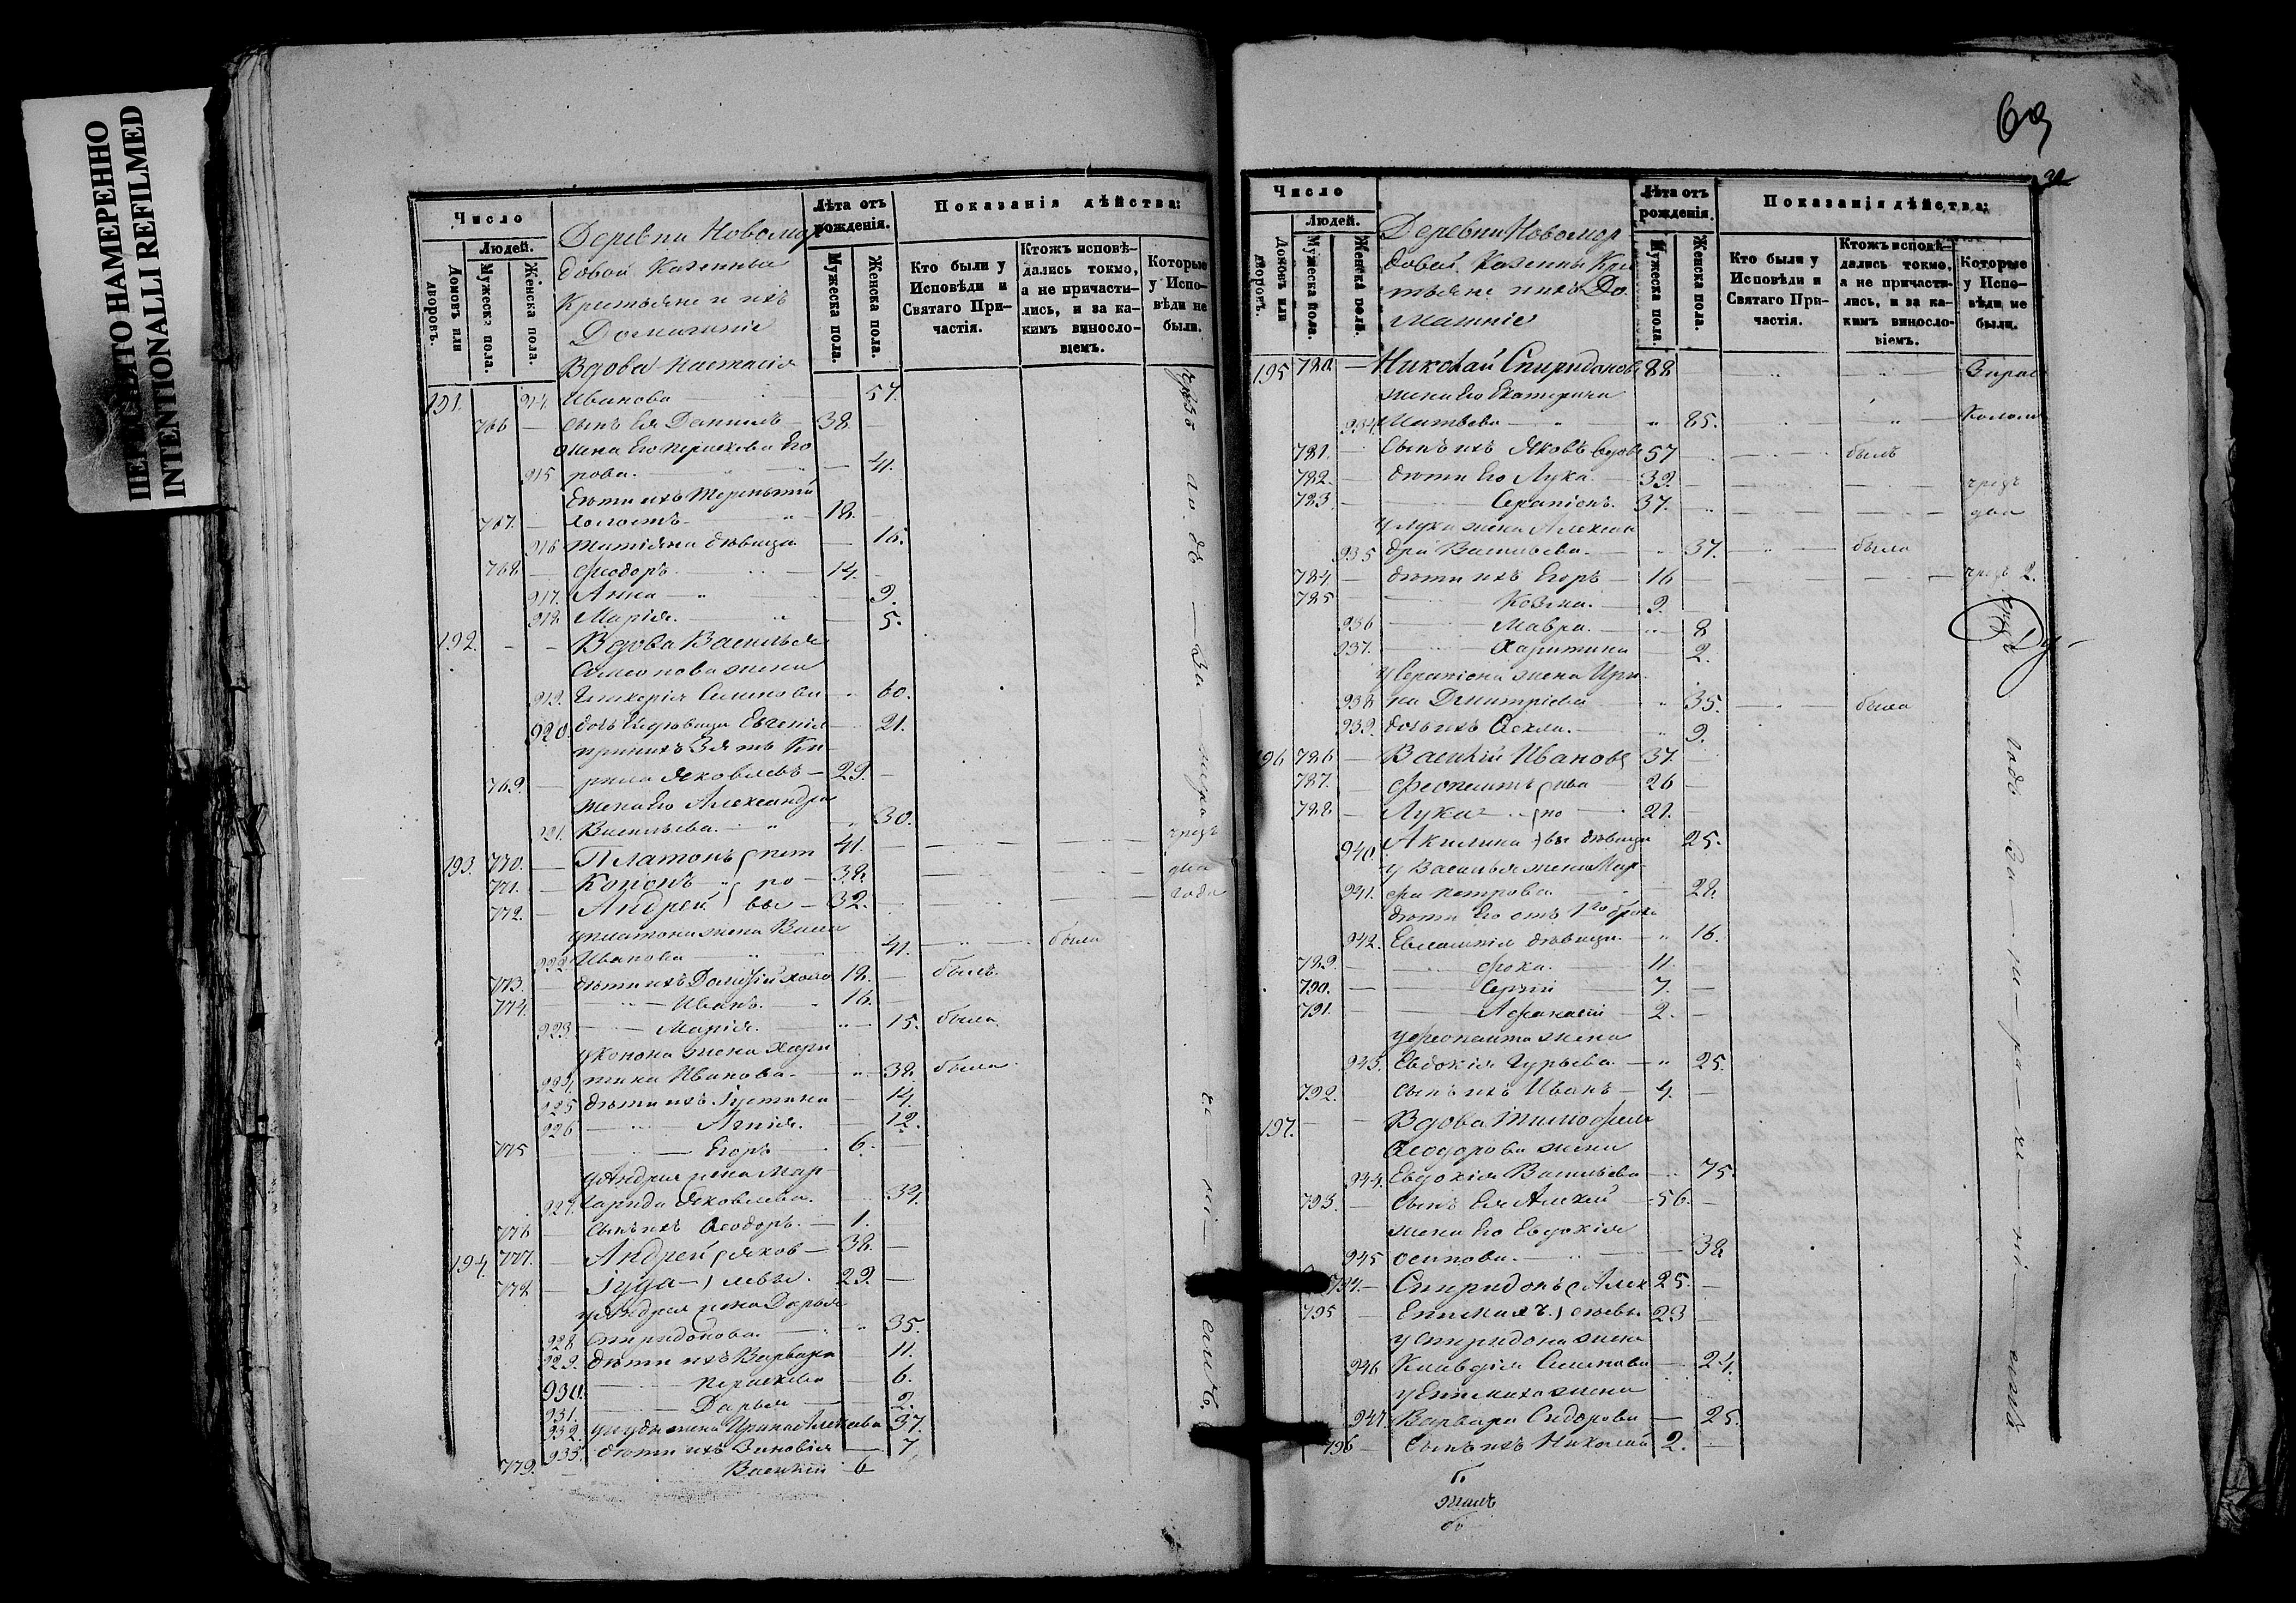 ПЕРЕСНЯТО НАМЕРЕННО
INTENTIONALLI REFILMED
Число
Людей.
Домовъ или дворовъ.
Мужеска пола.
Женска пола.
Деревни Новомор
довой Казенные
Крестьяне и ихъ
Домашніе
Лѣта отъ рожденія.
Мужеска пола.
Женска пола.
Показанія дѣйства:
Кто были у Исповѣди и Святаго Причастія.
Ктожъ исповѣдались токмо, а не причастились, и за какимъ винословіемъ.
Которые у Исповѣди не были.
Вдова Настасія
191. 914. Иванова 57.
766 сынъ Ея Даниилъ 38.
жена Его Параскева Его
915 рова. 41.
дѣти ихъ Терентій
767. холостъ 18.
916 Татіяна дѣвица 16.
768 Феодоръ 14.
917. Анна 9.
918 Марія 5.
192. Вдова Василья
Симеонова жена
919. Гликерія Семенова 60.
920. дочь Ея дѣвица Евгенія 21.
принятъ Зять Ки
769. рила Яковлевъ 29.
жена Его Александра
921. Васильева 30.
193. 770. Платонъ пет 41. чрезъ
771. Кононъ ро 38. два
772. Андрей вы 32. года
у Платона жена Васса
922. Иванова 41. была
773. дѣти ихъ Дометій холо 18. былъ
774. Иванъ 16.
923. Марія 15. была
у Конона жена Хари
924. тина Иванова 38. была
925 дѣти ихъ Іустина 14.
926 Агнія 12.
775 Егоръ 6.
у Андрея жена Мар
927. гарида Яковлева 34.
776 сынъ ихъ Феодоръ 1.
194. 777. Андрей яков 38.
778. Іуда левы 29.
у Андрея жена Дарья
928 Спиридонова 35.
929. дѣти ихъ Варвара 11.
930. Параскева 6.
931. Дарья 2.
932. у Іуды жена Ирина 37.
933. дѣти ихъ Зиновія 7
779. Василій 6
69
Число
Людей.
Домовъ или дворовъ.
Мужеска пола.
Женска пола.
Деревни Новомор
довой Казенны Кре
стьяне и ихъ До
машніе
Лѣта отъ рожденія.
Мужеска пола.
Женска пола.
Показанія дѣйства:
Кто были у Исповѣди и Святаго Причастія.
Ктожъ исповѣдались токмо, а не причастились, и за какимъ винословіемъ.
Которые у Исповѣди не были.
195 780 Николай Спиридоновъ 88
жена Его Екатерина
934. Матвѣева 85.
781. сынъ ихъ Яковъ вдовъ 57 былъ
782. дѣти Его Лука 39. чрезъ
783 Серапіонъ 37. два
у Луки жена Алексан
935 дра Васильева 37. была
784. дѣти ихъ Егоръ 16 чрезъ 2.
785 Козма 9.
936 Мавра 8
937. Харитина 2.
у Серапіона жена Ири
938 на Дмитріева 35. была
939. дочь ихъ Фекла 9.
196 786 Василій Иванов 37.
787. Феопемптъ ива 26
788 Лука но 21.
940. Акилина вы дѣвица 25.
у Василья жена Мар
941. фа Петрова 28.
дѣти Его отъ 1го брака
942. Евлампія дѣвица 16.
789. Фока 11.
790. Сергій 7.
791. Афанасій 2.
у Феопемпта жена
943. Евдокія Гурьева 25.
792. сынъ ихъ Иванъ 4.
197. Вдова Тимофея
Феодорова жена
944. Евдокія Васильева 75.
793. сынъ Ея Алексей 56.
жена Его Евдокія
945 Осипова 38
794. Спиридонъ Алек 25.
795 Епимахъ сѣевы 23
у Спиридона жена
946 Клавдія Семенова 24.
у Епимаха жена
947. Варвара Сидорова 25.
796 сынъ ихъ Николай 2.